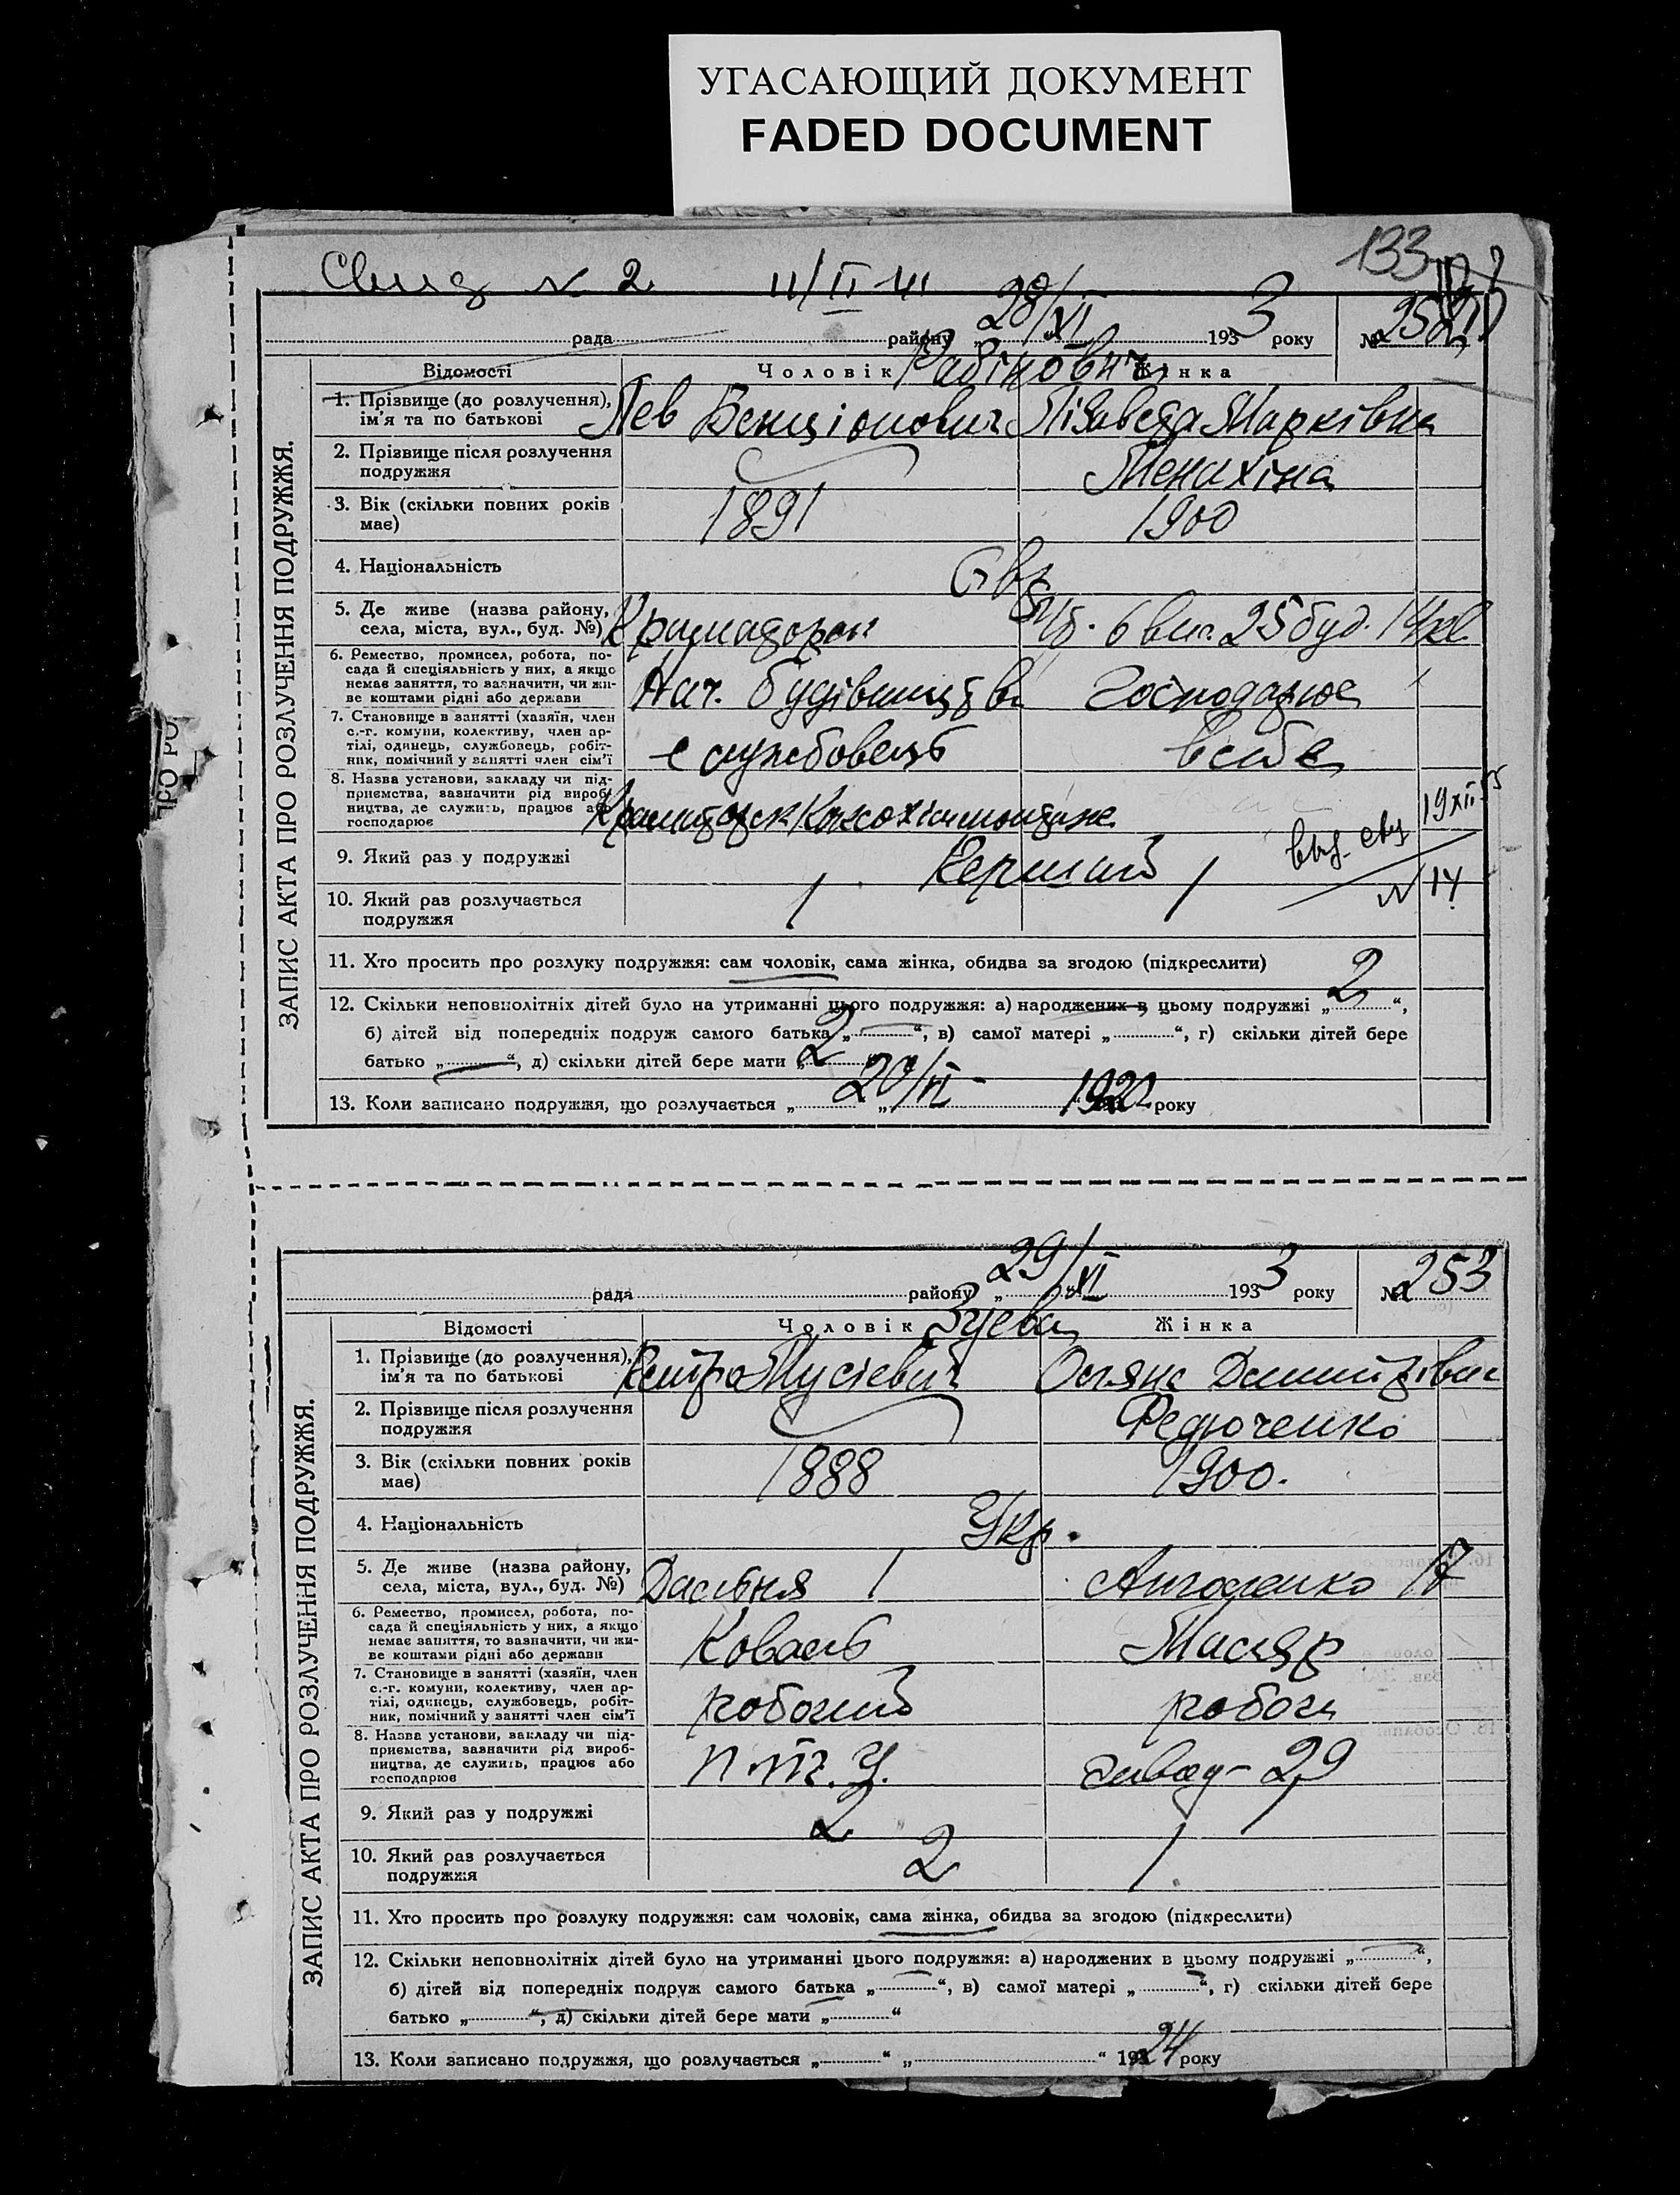 УГАСАЮЩИЙ ДОКУМЕНТ
FADED DOCUMENT
133
№ 2
рада района 28/XI 1933 року № 252
Відомості Чоловік Рабінович Жінка
ЗАПИС АКТА ПРО РОЗЛУЧЕННЯ ПОДРУЖЖЯ.
1. Прізвище (до розлучення), ім'я та по батькові Лев Бенціонович Лізавета Марківна
2. Прізвище після розлучення подружжя Менахіна
3. Вік (скільки повних років має) 1891 1900
4. Національність Євр.
5. Де живе (назва району, села, міста, вул., буд. №) Краматорськ 6 вис. 25 буд. 14 кв.
6. Ремество, промисел, робота, по-
сада й спеціяльність у них, а якщо
немає заняття, то зазначити, чи жи-
ве коштами рідні або держави Нач. будівництва Господарює
7. Становище в занятті (хазяїн, член
с.-г. комуни, колективу, член ар-
тілі, одинець, службовець, робіт-
ник, помічний у занятті член сім'ї службовець в себе
8. Назва установи, закладу чи під-
приємства, зазначити рід вироб-
ництва, де служить, працює або
господарює Краматорськ Коксохіммонтаж
19 XII 55
9. Який раз у подружжі Перший
№ 14
10. Який раз розлучається подружжя 1 1
11. Хто просить про розлуку подружжя: сам чоловік, сама жінка, обидва за згодою (підкреслити)
12. Скільки неповнолітніх дітей було на утриманні цього подружжя: а) народжених в цьому подружжі „ 2 “,
б) дітей від попередніх подруж самого батька „ “, в) самої матері „ “, г) скільки дітей бере
батько „ “, д) скільки дітей бере мати „ 2
13. Коли записано подружжя, що розлучається „ 20/VI 1922 року
рада району 29/XI 1933 року № 253
Відомості Чоловік Зуєва Жінка
ЗАПИС АКТА ПРО РОЗЛУЧЕННЯ ПОДРУЖЖЯ.
1. Прізвище (до розлучення), ім'я та по батькові Петро Мусієвич Оляна Дмитрівна
2. Прізвище після розлучення подружжя Федюченко
3. Вік (скільки повних років має) 1888 1900.
4. Національність Укр.
5. Де живе (назва району, села, міста, вул., буд. №) Дальня 1 17
6. Ремество, промисел, робота, по-
сада й спеціяльність у них, а якщо
немає заняття, то зазначити, чи жи-
ве коштами рідні або держави Коваль Маляр
7. Становище в занятті (хазяїн, член
с.-г. комуни, колективу, член ар-
тілі, одинець, службовець, робіт-
ник, помічний у занятті член сім'ї робочий робоча
8. Назва установи, закладу чи під-
приємства, зазначити рід вироб-
ництва, де служить, працює або
господарює завод - 29
9. Який раз у подружжі 2 1
10. Який раз розлучається подружжя 2 1
11. Хто просить про розлуку подружжя: сам чоловік, сама жінка, обидва за згодою (підкреслити)
12. Скільки неповнолітніх дітей було на утриманні цього подружжя: а) народжених в цьому подружжі „ “,
б) дітей від попередніх подруж самого батька „ “, в) самої матері „ “, г) скільки дітей бере
батько „ “, д) скільки дітей бере мати „ “
13. Коли записано подружжя, що розлучається „ “ „ “ 1924 року